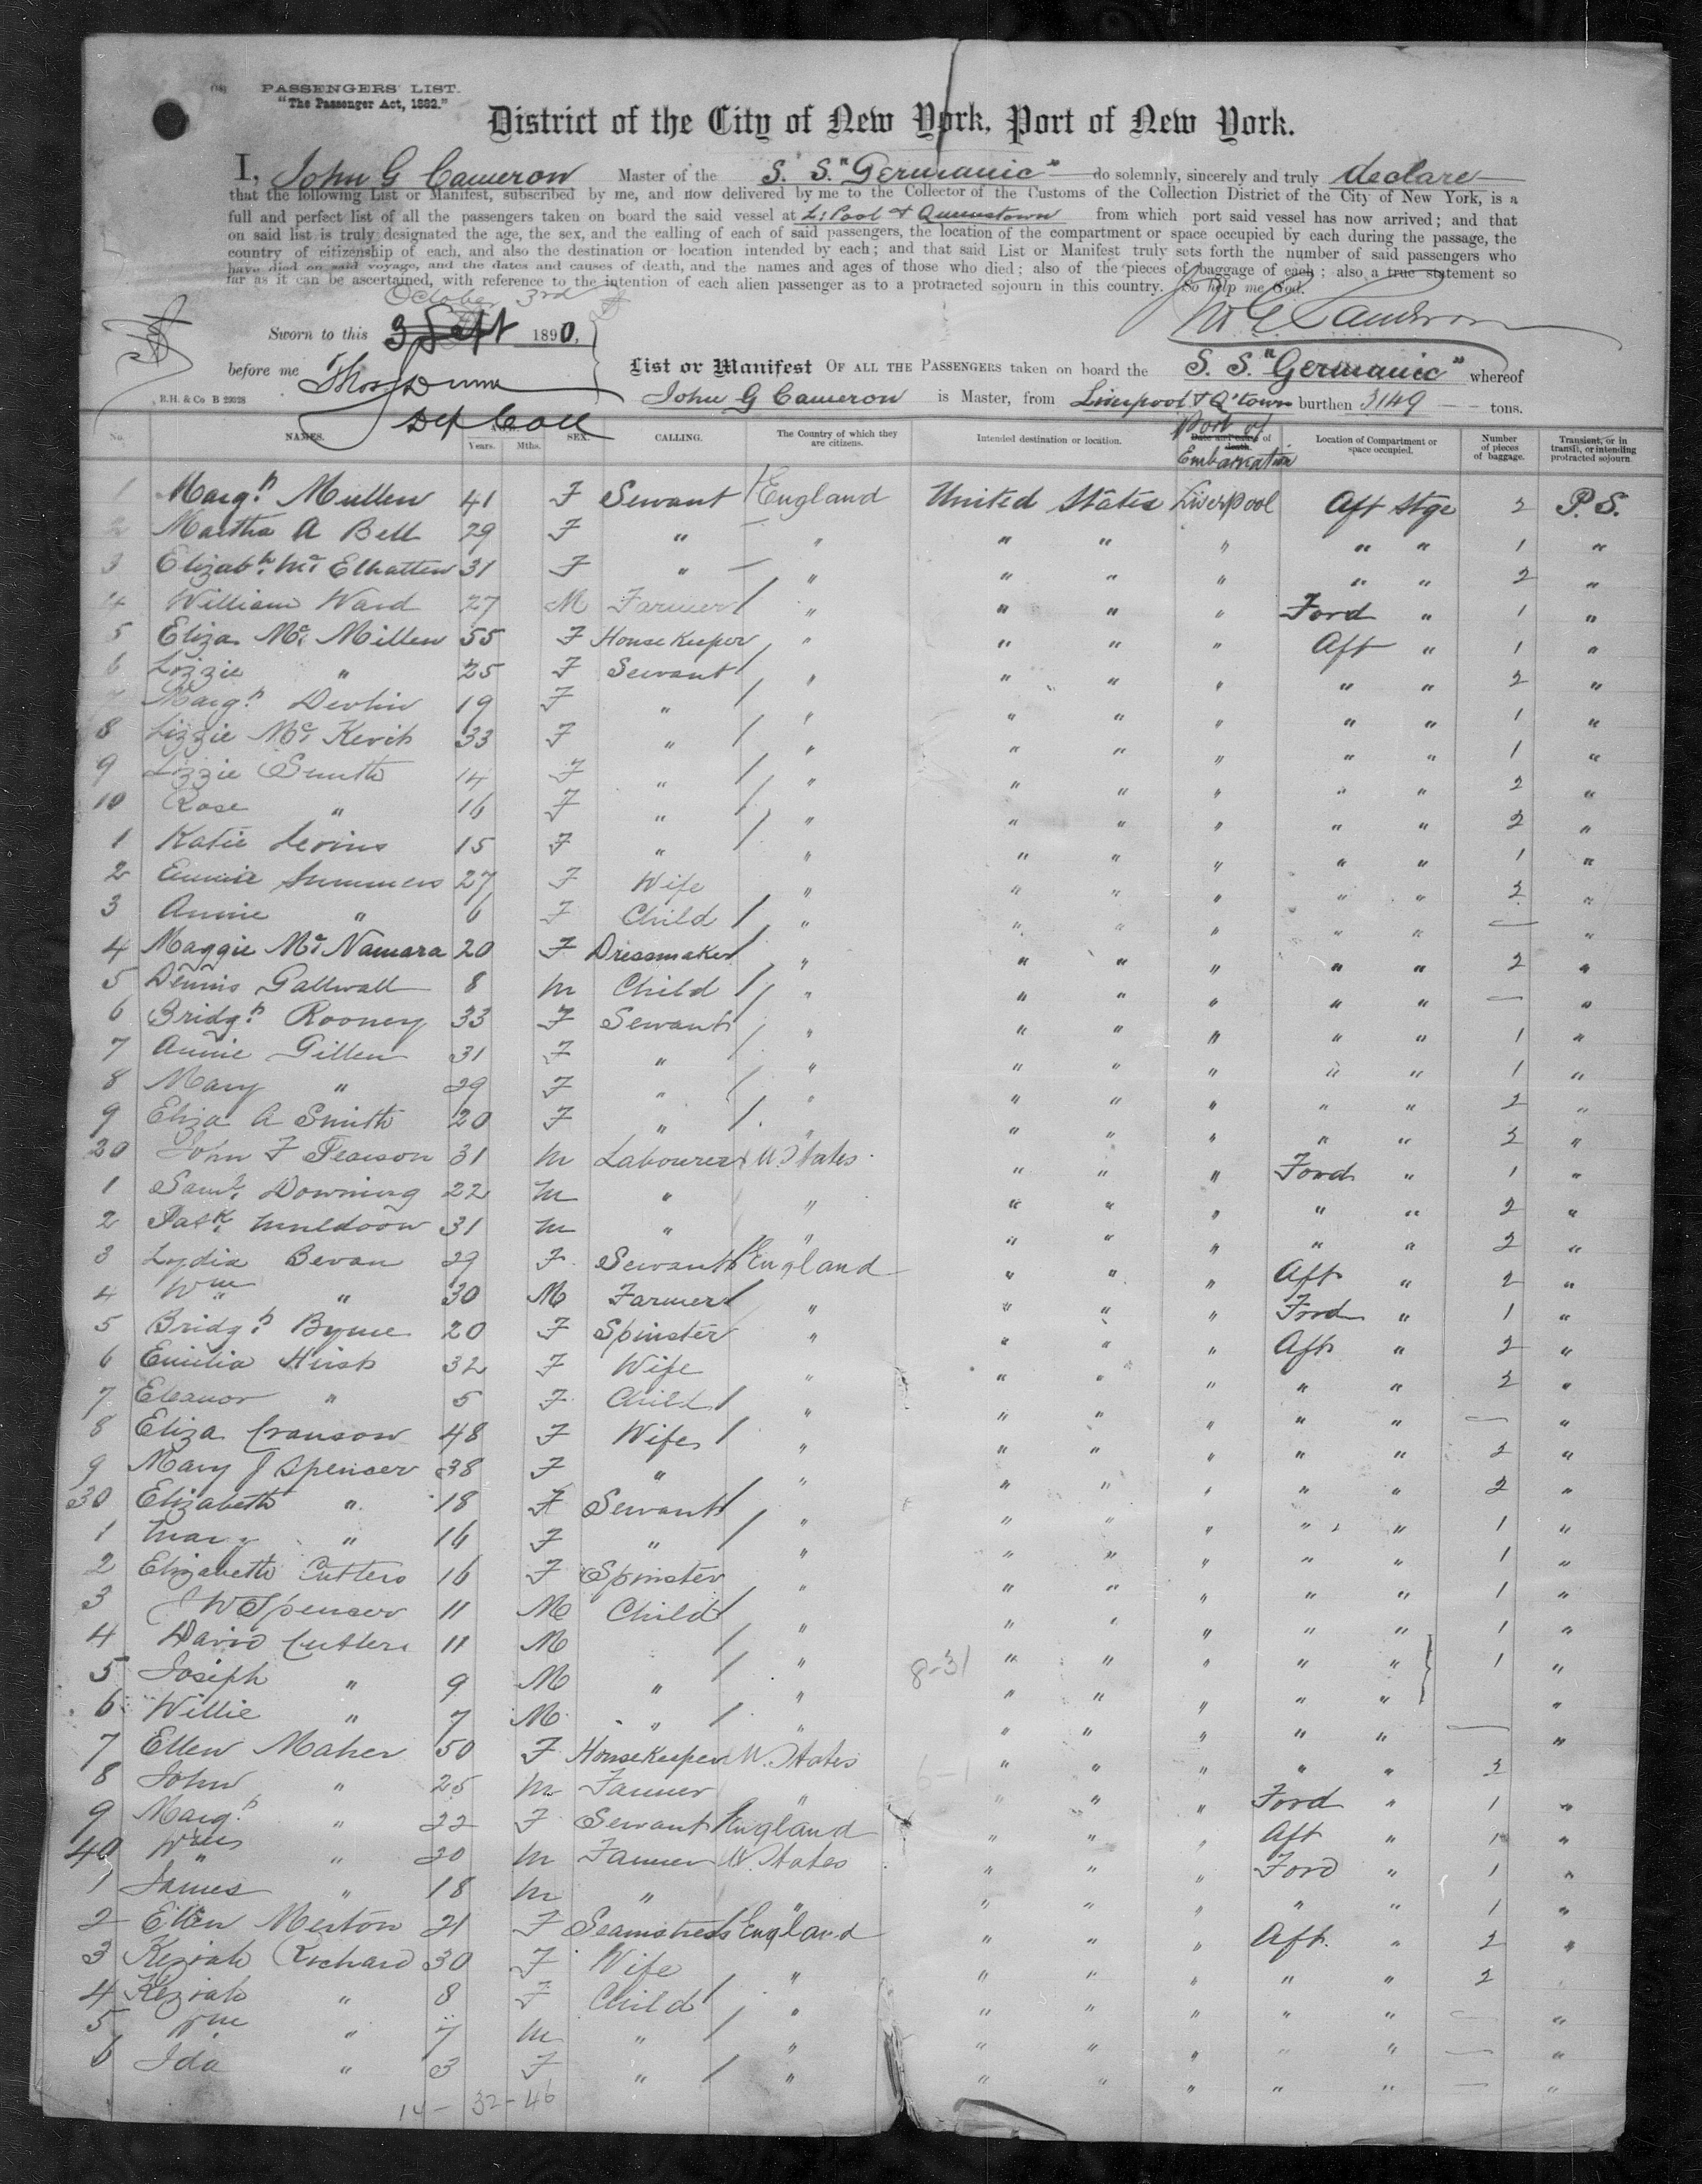 PASSENGERS' LIST.
"The Passenger Act, 1882."
District of the City of New York, Port of New York.
I, John G Cameron Master of the S. S. "Germanic" do solemnly, sincerely and truly declare
that the following List or Manifest, subscribed by me, and now delivered by me to the Collector of the Customs of the Collection District of the City of New York, is a
full and perfect list of all the passengers taken on board the said vessel at L'Pool & Queenstown from which port said vessel has now arrived; and that
on said list is truly designated the age, the sex, and the calling of each of said passengers, the location of the compartment or space occupied by each during the passage, the
country of citizenship of each, and also the destination or location intended by each; and that said List or Manifest truly sets forth the number of said passengers who
have died on said voyage, and the dates and causes of death, and the names and ages of those who died; also of the pieces of baggage of each; also a true statement so
far as it can be ascertained, with reference to the intention of each alien passenger as to a protracted sojourn in this country. So help me God.
October 3rd
Sworn to this 3 Sept 1890,
Cameron
before me Thos Dunn
Dep Coll
List or Manifest OF ALL THE PASSENGERS taken on board the S. S. "Germanic" whereof
R.H. & Co B 29328
John G Cameron is Master, from Liverpool & Q'town burthen 3149 tons.
No. NAMES. AGE. Years. Mths. SEX. CALLING. The Country of which they are citizens. Intended destination or location. Date and cause of death. Port of Embarcation Location of Compartment or space occupied. Number of pieces of baggage. Transient, or in transit, or intending protracted sojourn.
1 Margt Mullen 41 F Servant England United States Liverpool Aft Stge 2 P.S.
2 Martha A Bell 29 F " " " " " " " 1 "
3 Elizabth Mc Elhatten 31 F " " " " " " " 2 "
4 William Ward 27 M Farmer " " " " Ford " 1 "
5 Eliza Mc Millen 55 F House Keeper " " " " Aft " 1 "
6 Lizzie " 25 F Servant " " " " " " 2 "
7 Margt Devlin 19 F " " " " " " " 1 "
8 Lizzie Mc 33 F " " " " " " " 1 "
9 Lizzie Smith 14 F " " " " " " " 2 "
10 Rose " 16 F " " " " " " " 2 "
1 Katie Levins 15 F " " " " " " " 1 "
2 Summers 27 F Wife " " " " " " 2 "
3 Annie " 6 F Child " " " " " " — "
4 Maggie Mc Namara 20 F Dressmaker " " " " " " 2 "
5 Dennis Gallwall 8 M Child " " " " " " — "
6 Bridgt Rooney 33 F Servant " " " " " " 1 "
7 Annie Gillen 31 F " " " " " " " 1 "
8 Mary " 29 F " " " " " " " 2 "
9 Eliza A Smith 20 F " " " " " " " 2 "
20 John F Pearson 31 M Labourer U. States " " " Ford " 1 "
1 Saml Downing 22 M " " " " " " " 2 "
2 Patk Muldoon 31 M " " " " " " " 2 "
3 Lydia Bevan 29 F Servant England " " " Aft " 2 "
4 Wm " 30 M Farmer " " " " Ford " 1 "
5 Bridgt Byrne 20 F Spinster " " " " Aft " 2 "
6 Emilia Hirst 32 F Wife " " " " " " 2 "
7 Eleanor " 5 F Child " " " " " " — "
8 Eliza Cranson 48 F Wife " " " " " " 2 "
9 Mary J Spencer 38 F " " " " " " " 2 "
30 Elizabeth " 18 F Servant " " " " " " 1 "
1 Mary " 16 F " " " " " " " 1 "
2 Elizabeth Cutters 16 F Spinster " " " " " " 1 "
3 J W Spencer 11 M Child " " " " " " 1 "
4 David Cutters 11 M " " " " " " " 1 "
5 Joseph " 9 M " " 8-31 " " " " " "
6 Willie " 7 M " " " " " " " — "
7 Ellen Maher 50 F Housekeeper U. States " " " " " 2
8 John " 25 M Farmer " " " " Ford " 1 "
9 Margt " 22 F Servant England " " " Aft " 1 "
40 Wm " 20 M Farmer U. States " " " Ford " 1 "
1 James " 18 M " " " " " " " 1 "
2 Ellen Merton 21 F Seamstress England " " " Aft " 2 "
3 Keziah Richard 30 F Wife " " " " " " 2
4 Keziah " 8 F Child " " " " " " — "
5 Wm " 7 M " " " " " " " — "
6 Ida " 3 F " " " " " " " — "
14 - 32 - 46